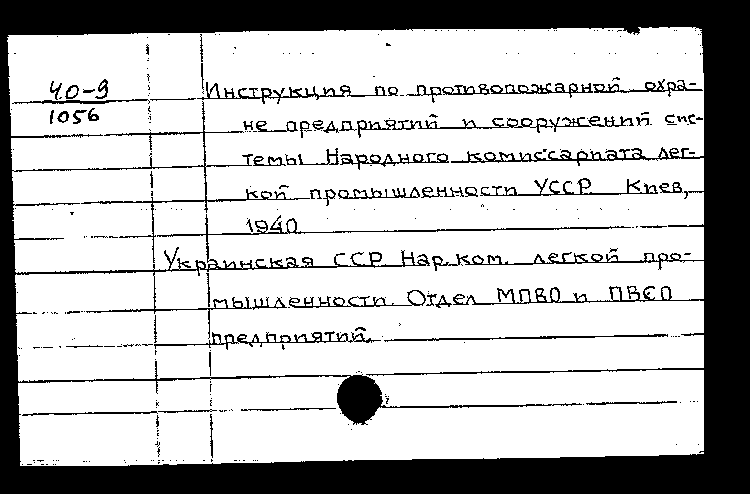 40-9
1056
Инструкция по противопожарной охра-
не предприятий и сооружений сис-
темы Народного комиссариата лег-
кой промышленности УССР. Киев,
1940
Украинская ССР Нар. ком. легкой про-
мышленности. Отдел МПВО и ПВСО
предприятий.